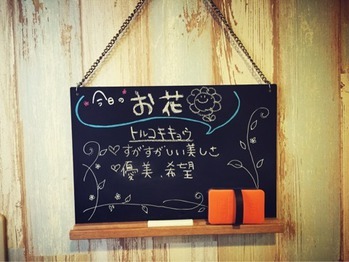 今日の お花
トルコキキョウ
すがすがしい美しさ
優美、希望